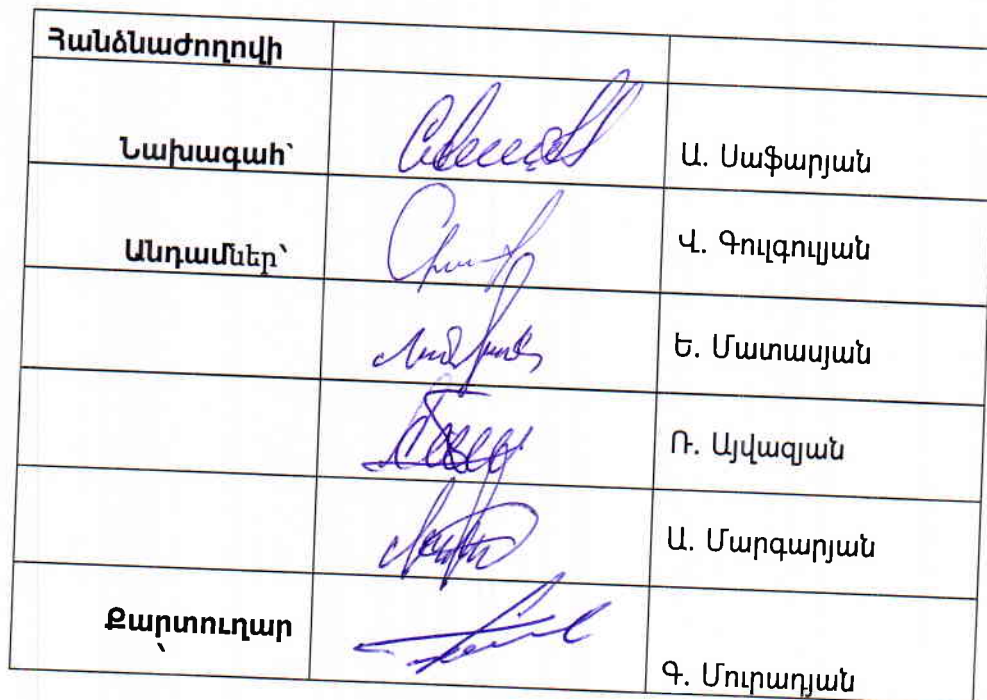 Հանձնաժողովի
Նախագահ՝ Ա. Սաֆարյան
Անդամներ՝ Վ. Գուլգուլյան
Ե. Մատասյան
Ռ. Այվազյան
Ա. Մարգարյան
Քարտուղար
՝ Գ. Մուրադյան